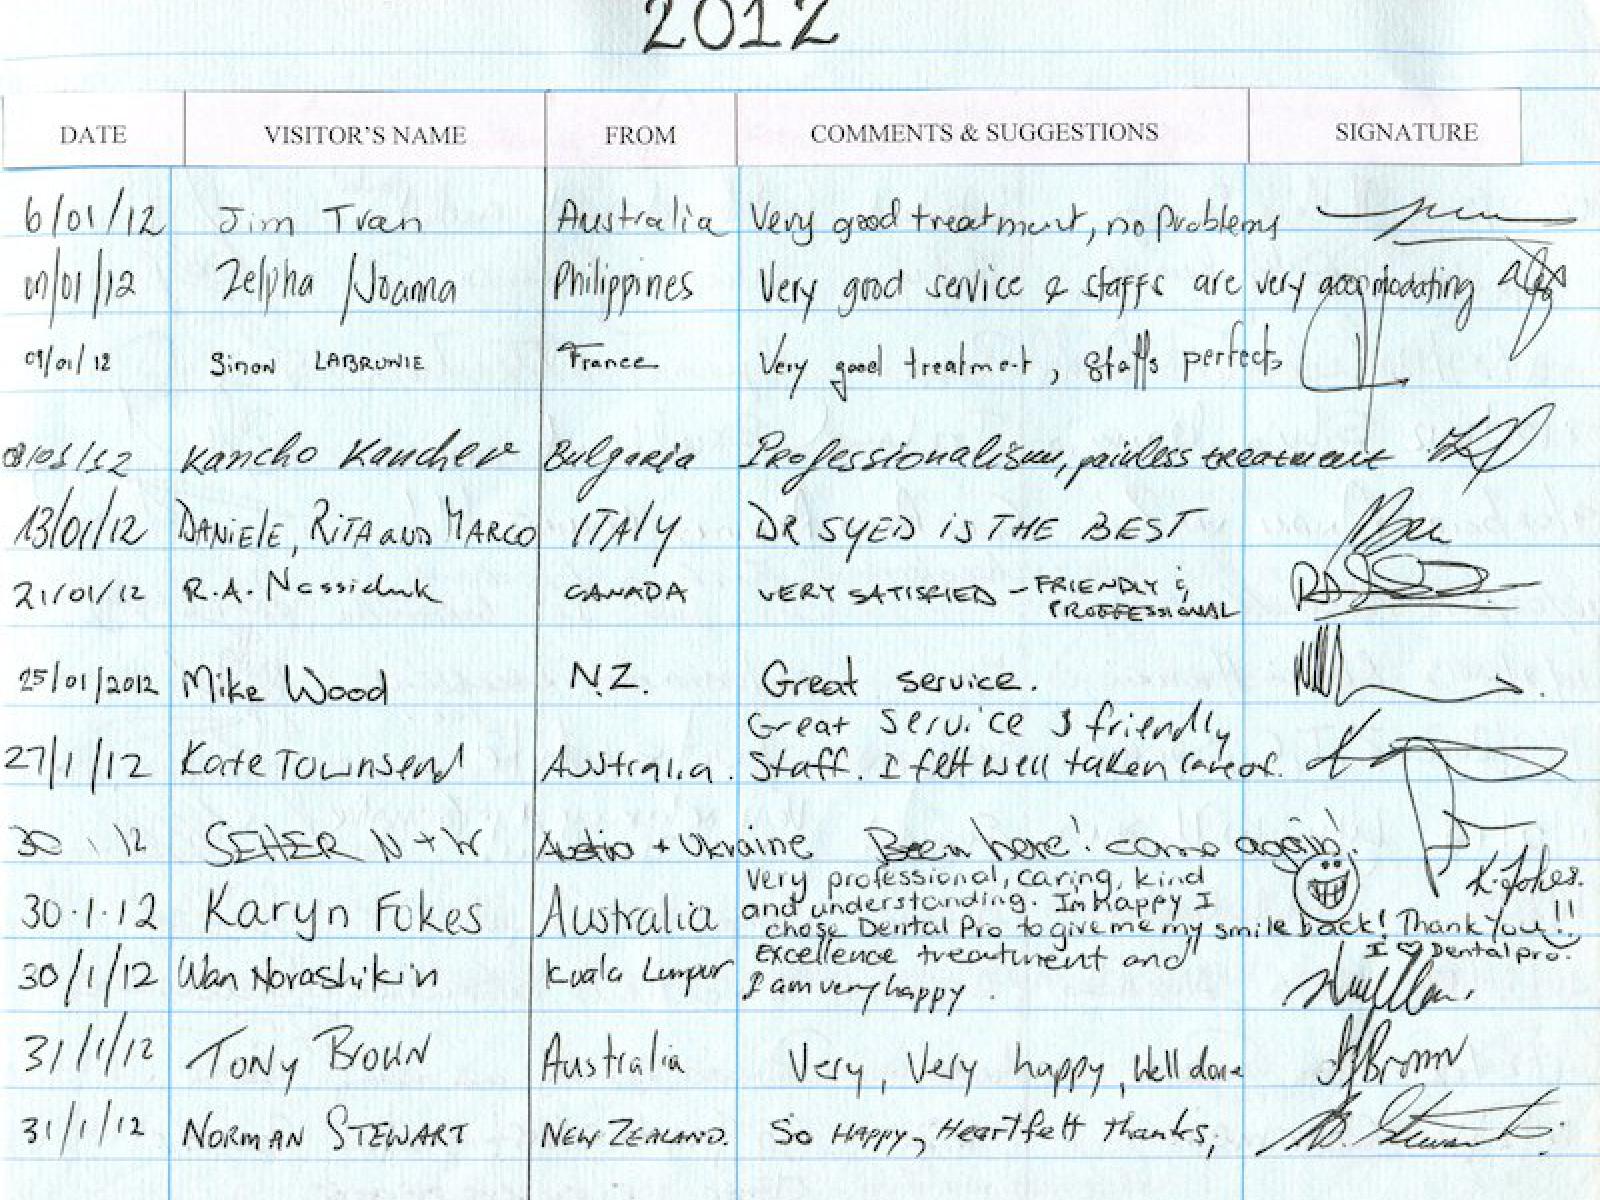 2012
DATE VISITOR'S NAME FROM COMMENTS & SUGGESTIONS SIGNATURE
6/01/12 Jim Tran Australia Very good treatment, no problems
/01/12 Zelpha / Joanna Philippines Very good service & staffs are very accomodating
09/01/12 Simon LABRUNIE France Very good treatment, staffs perfects
Kancho Kanchev Bulgaria Professionalism, painless treatment
13/01/12 DANIELE, RITA AND MARCO ITALY DR SYED IS THE BEST
21/01/12 R.A. CANADA VERY SATISFIED - FRIENDLY &
PROFFESSIONAL
25/01/2012 Mike Wood N.Z. Great service.
Great service & friendly
27/1/12 Kate Townsend Australia. Staff. I felt well taken care of.
30 1 12 SEHER N + W Austria + Ukraine Been here! come again!
Very professional, caring, kind
30.1.12 Karyn Fokes Australia and understanding. Im Happy I K. Fokes.
chose Dental Pro to give me my smile back! Thank You!!
I ♡ Dental pro.
30/1/12 Wan Norashikin Kuala Lumpur Excellence treatment and
I am very happy.
31/1/12 TONY BROWN Australia Very, Very happy, Well done Brown
31/1/12 NORMAN STEWART NEW ZEALAND. So HAPPY, Heartfelt thanks, Stewart